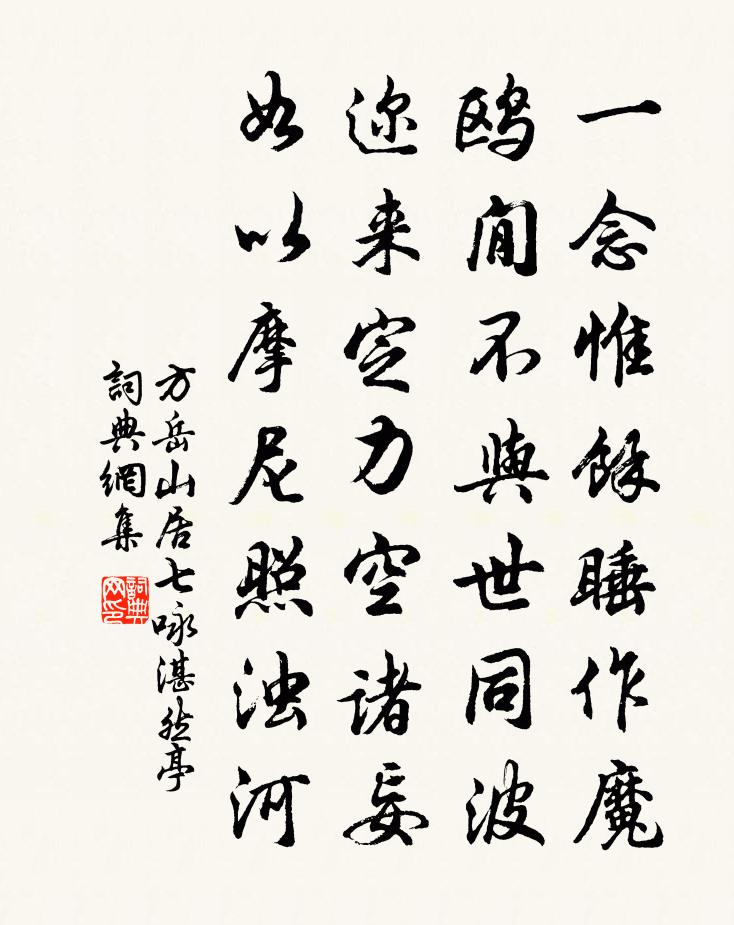 一念惟餘睡作魔
鷗閒不與世同波
迩来定力空諸妄
如以摩尼照浊河
方岳山居七咏湛然亭
詞典網集
詞典網印